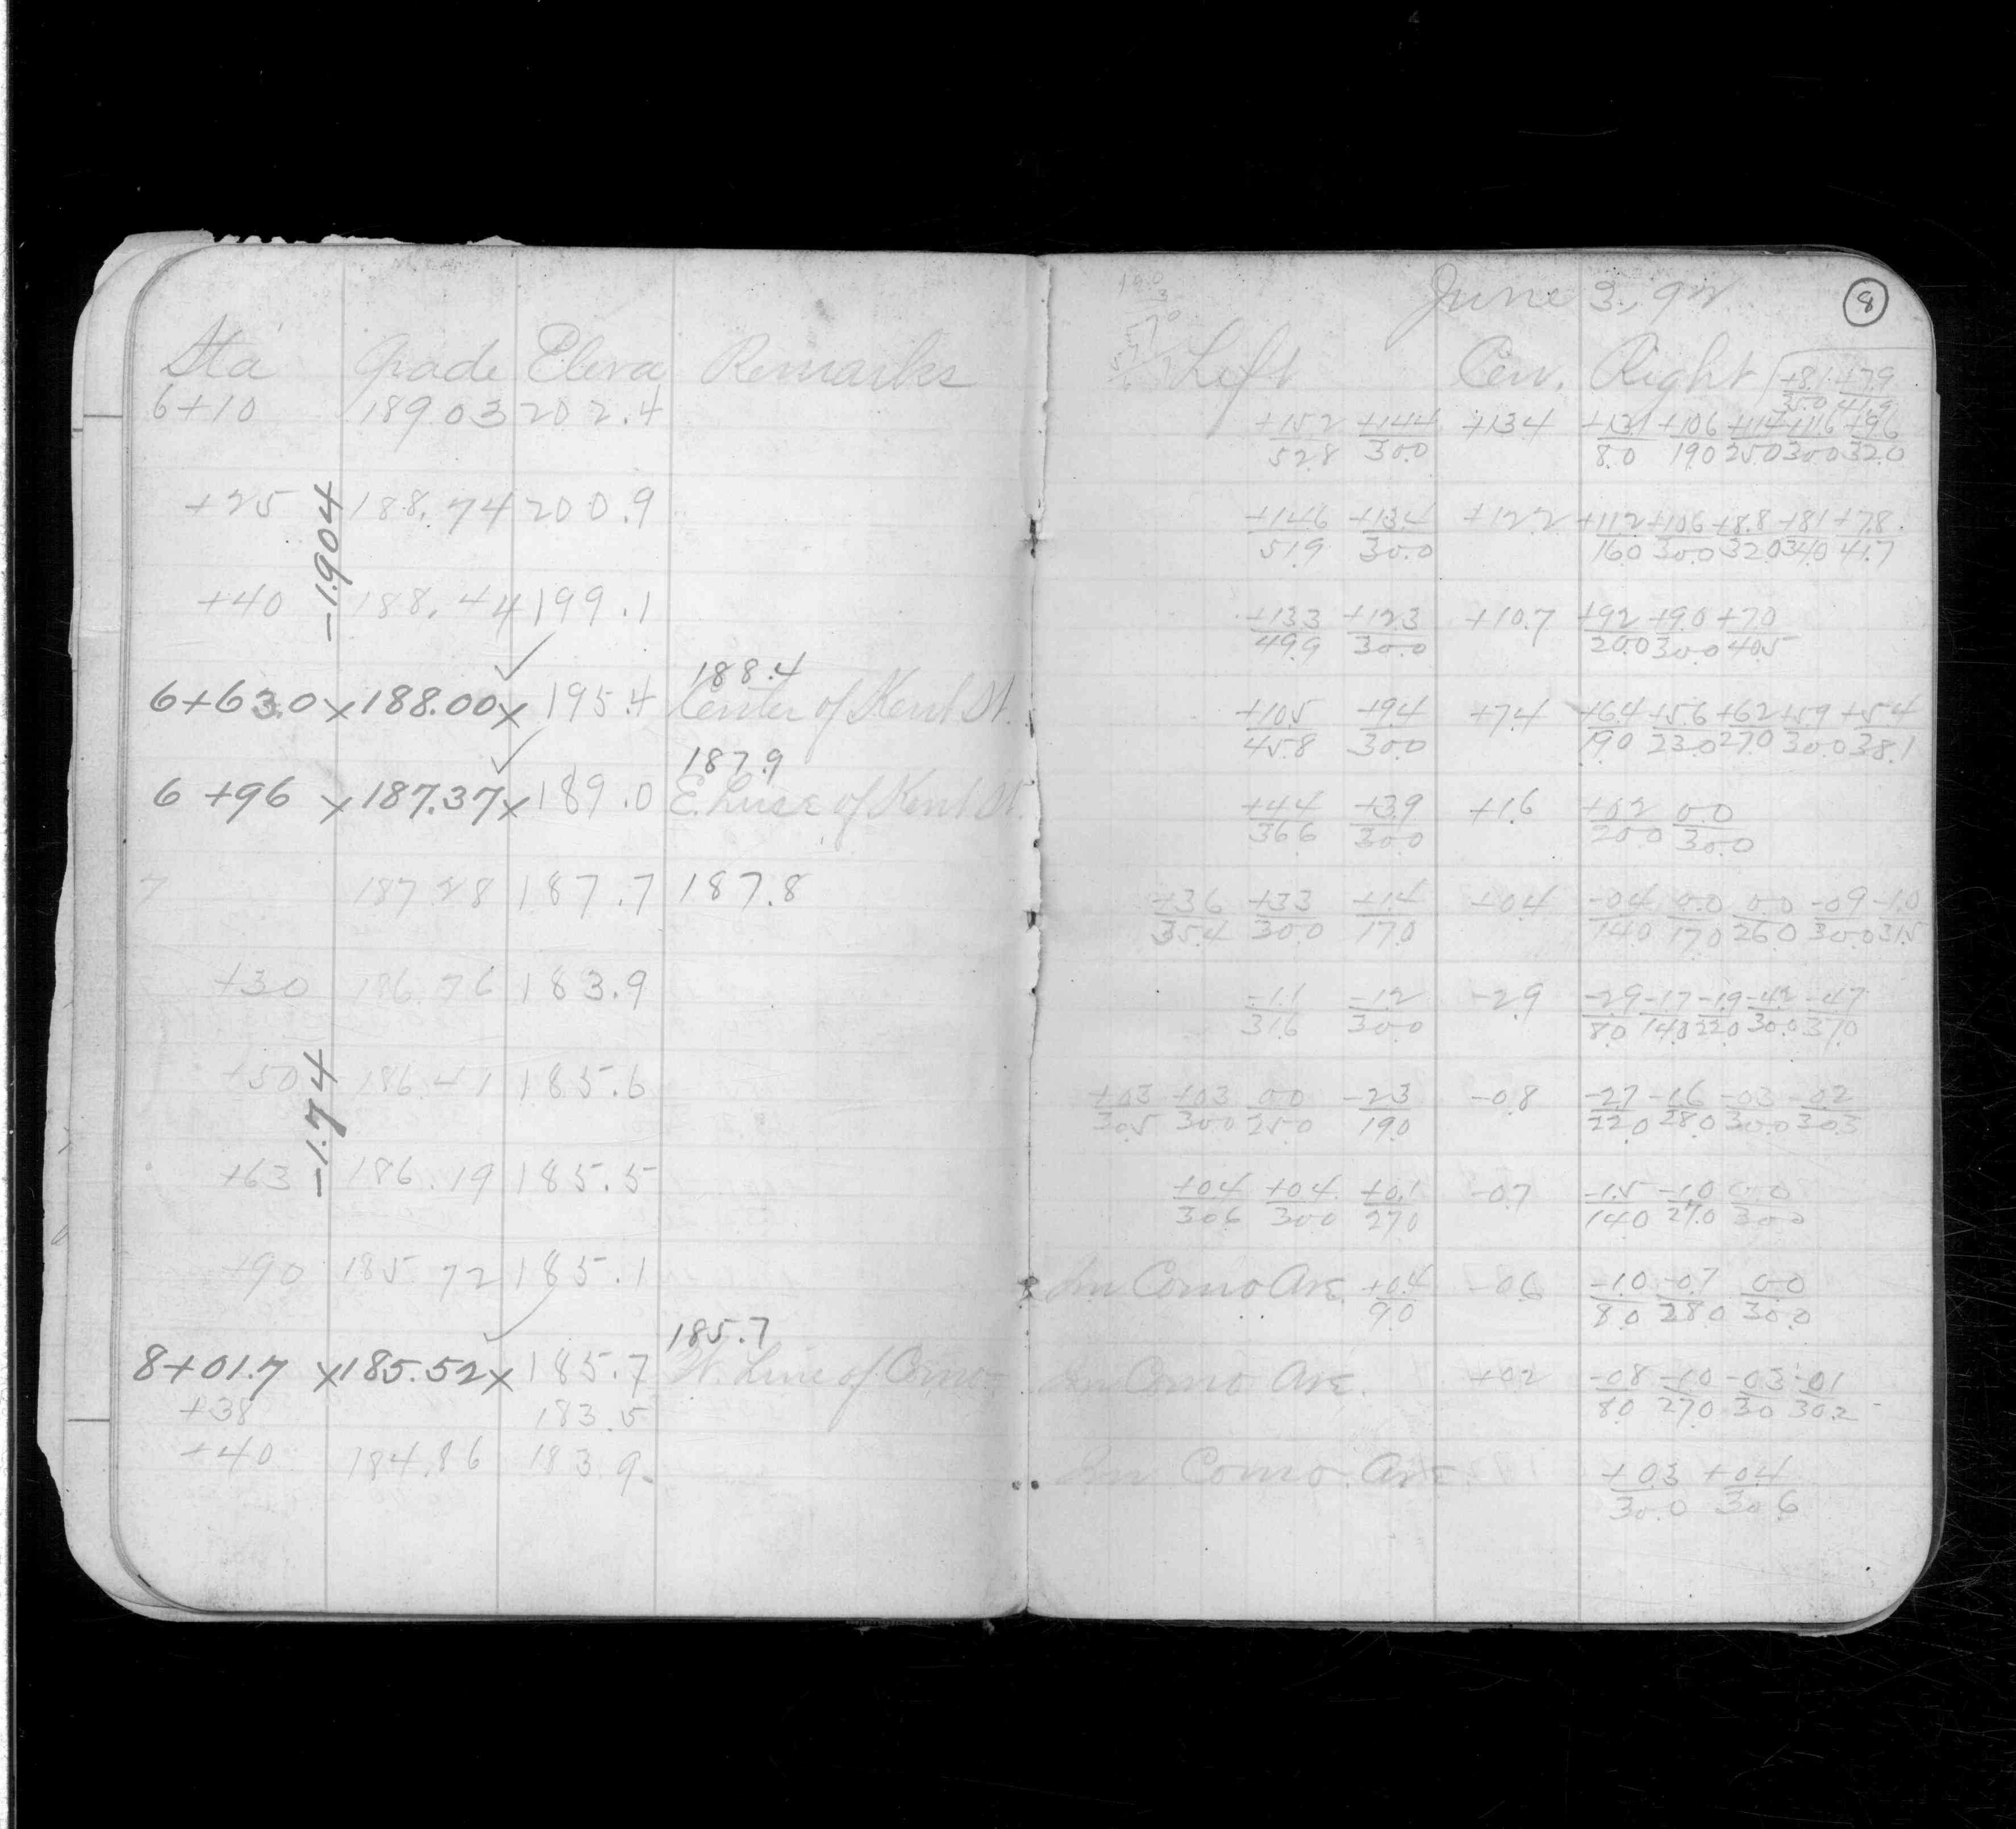 Sta Grade Eleva Remarks
6+10 189.03 202.4
+25 188.74 200.9
-1.904
+40 188.44 199.1
188.4
6+63.0 x 188.00 x 195.4 Center of Kent St.
187.9
6+96 x 187.37 x 189.0 E. Line of Kent St.
7 187.28 187.7 187.8
+30 186.76 183.9
+50 186.41 185.6
-1.74
+63 186.19 185.5
+90 185.72 185.1
185.7
8+01.7 x 185.52 x 185.7 W. Line of Como
+38 183.5
+40 184.86 183.9
June 3, 92. 8
Left Cen. Right +8.1 +7.9
35.0 41.9
+15.2 +14.4 +13.4 +13.1 +10.6 +11.4 +11.6 +9.6
52.8 30.0 8.0 19.0 25.0 30.0 32.0
+14.6 +13.4 +12.2 +11.2 +10.6 +8.8 +8.1 +7.8
51.9 30.0 16.0 30.0 32.0 34.0 41.7
+13.3 +12.3 +10.7 +9.2 +9.0 +7.0
49.9 30.0 20.0 30.0 40.5
+10.5 +9.4 +7.4 +6.4 +5.6 +6.2 +5.9 +5.4
45.8 30.0 19.0 23.0 27.0 30.0 38.1
+4.4 +3.9 +1.6 +0.2 0.0
36.6 30.0 20.0 30.0
+3.6 +3.3 +1.4 +0.4 -0.4 0.0 0.0 -0.9 -1.0
35.4 30.0 17.0 14.0 17.0 26.0 30.0 31.5
-1.1 -1.2 -2.9 -2.9 -1.7 -1.9 -4.2 -4.7
31.6 30.0 8.0 14.0 22.0 30.0 37.0
+0.3 +0.3 0.0 -2.3 -0.8 -2.7 -1.6 -0.3 -0.2
30.5 30.0 25.0 19.0 22.0 28.0 30.0 30.3
+0.4 +0.4 +0.1 -0.7 -1.5 -1.0 0.0
30.6 30.0 27.0 14.0 27.0 30.0
In Como Ave. +0.4 -0.6 -1.0 -0.7 0.0
9.0 8.0 28.0 30.0
In Como Ave. +0.2 -0.8 -1.0 -0.3 -0.1
8.0 27.0 30 30.2
In Como Ave. +0.3 +0.4
30.0 30.6